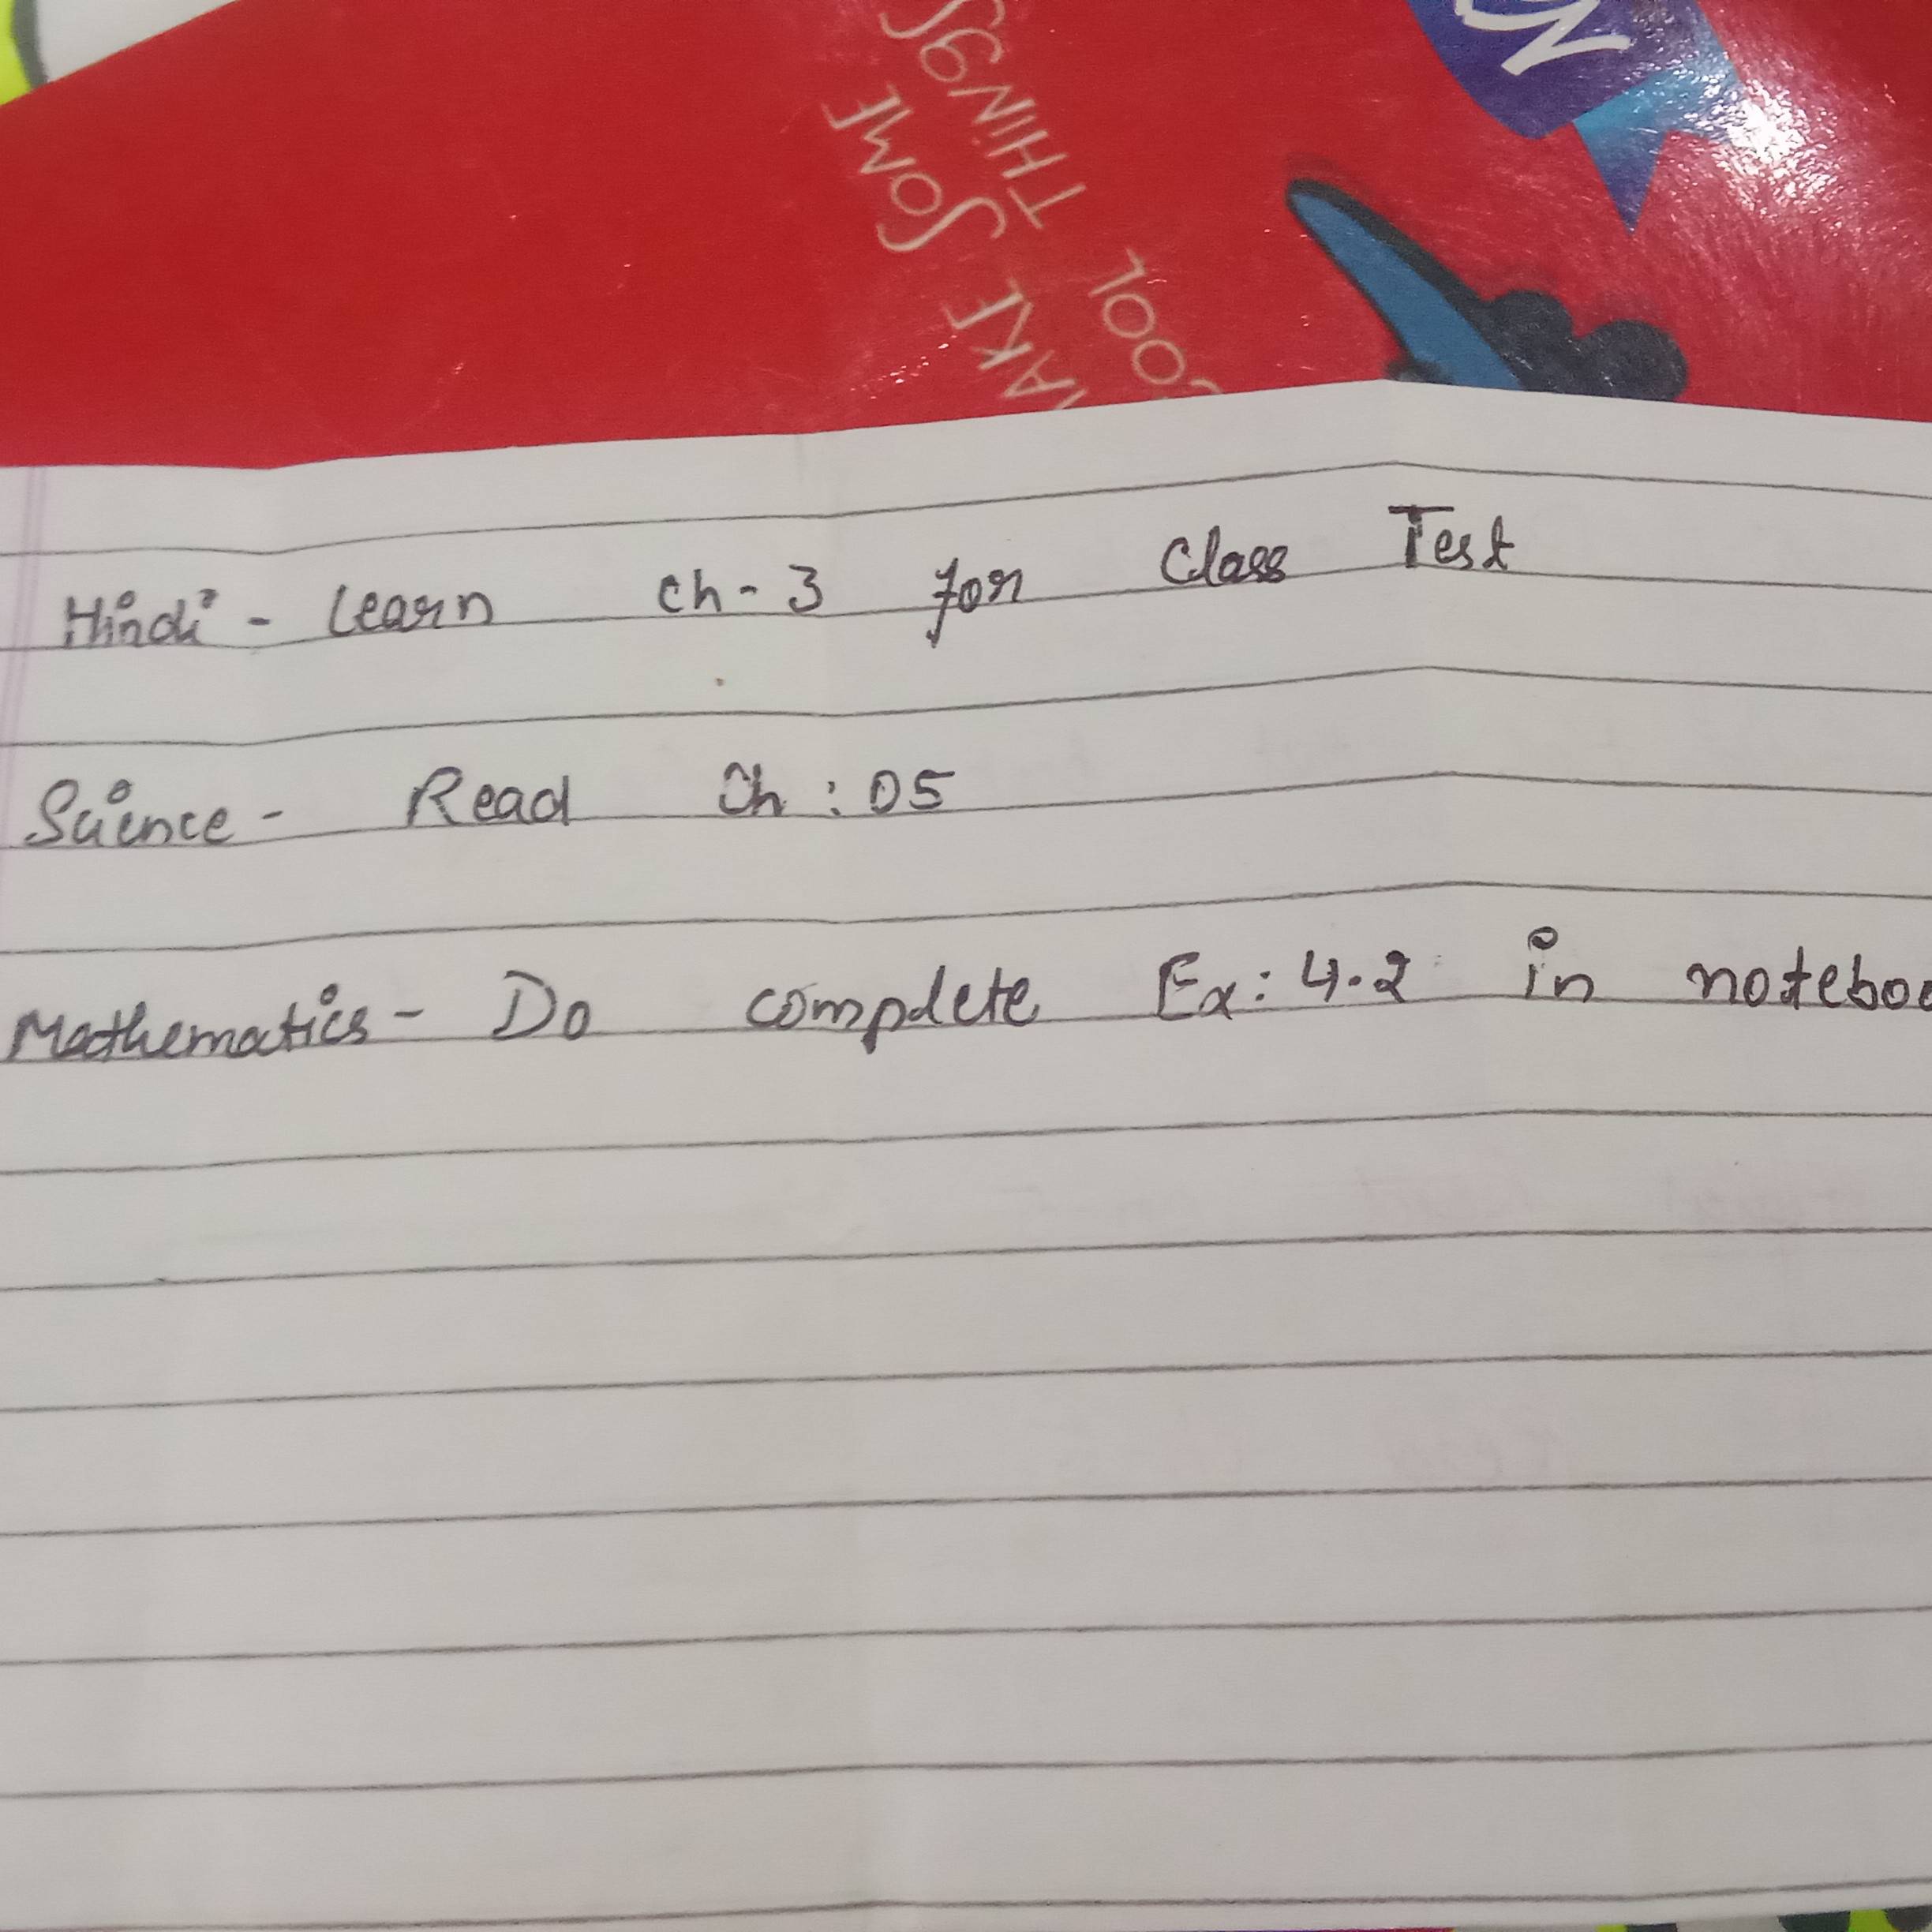 MAKE SOME
COOL THINGS
Hindi - Learn ch - 3 for Class Test
Science - Read Ch : 05
Mathematics - Do complete Ex : 4.2 in noteboo